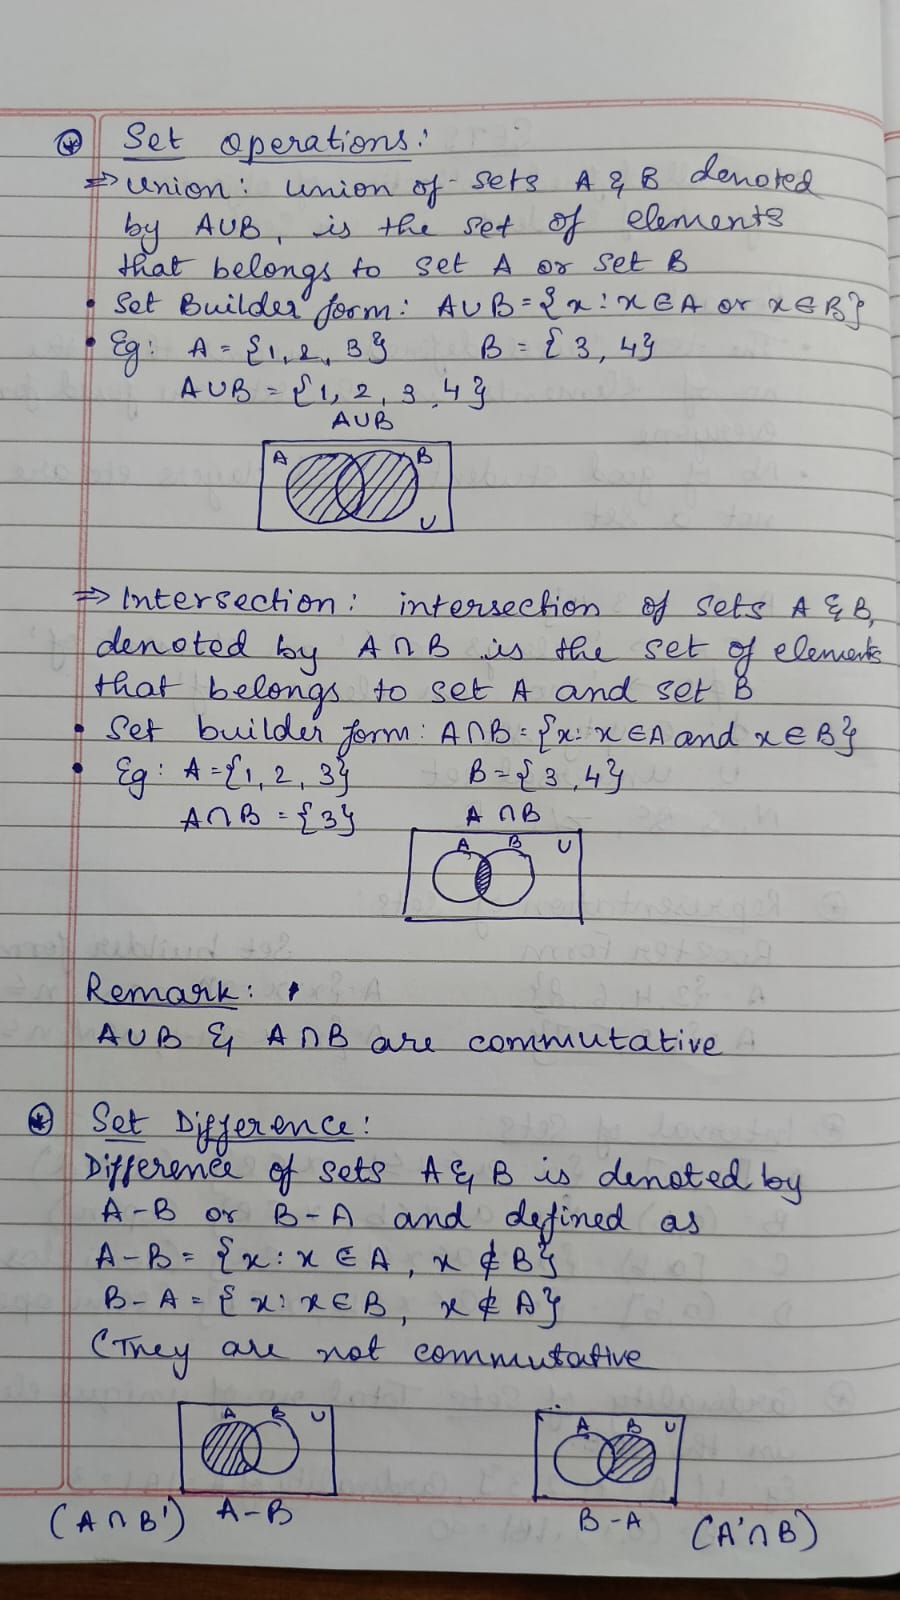 Set Operations:
⇒ Union: Union of sets A & B denoted
by A∪B, is the set of elements
that belongs to set A or set B
• Set Builder form: A∪B = {x : x ∈ A or x ∈ B}
• Eg: A = {1, 2, 3} B = {3, 4}
A∪B = {1, 2, 3, 4}
A∪B
A B
U
⇒ Intersection: intersection of sets A & B,
denoted by A∩B is the set of elements
that belongs to set A and set B
• Set builder form: A∩B = {x : x ∈ A and x ∈ B}
• Eg: A = {1, 2, 3} B = {3, 4}
A∩B = {3} A∩B
A B U
Remark:
A∪B & A∩B are commutative
Set Difference:
Difference of sets A & B is denoted by
A-B or B-A and defined as
A-B = {x : x ∈ A, x ∉ B}
B-A = {x : x ∈ B, x ∉ A}
(They are not commutative
A B U A B U
(A∩B') A-B B-A (A'∩B)